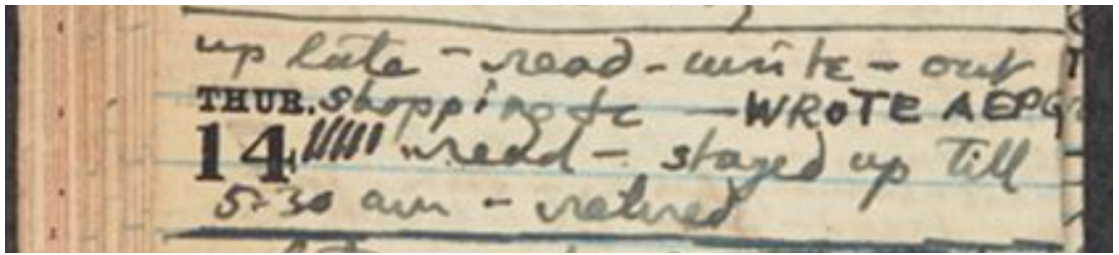 up late - read - write - out
THUR. shopping &c — WROTE AEPG
14 read - stayed up till
5:30 am - retired